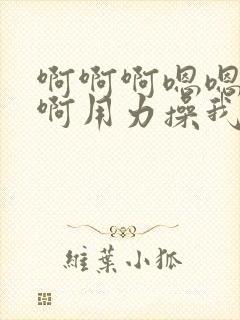 啊啊啊嗯嗯
啊用力操我
維葉小狐